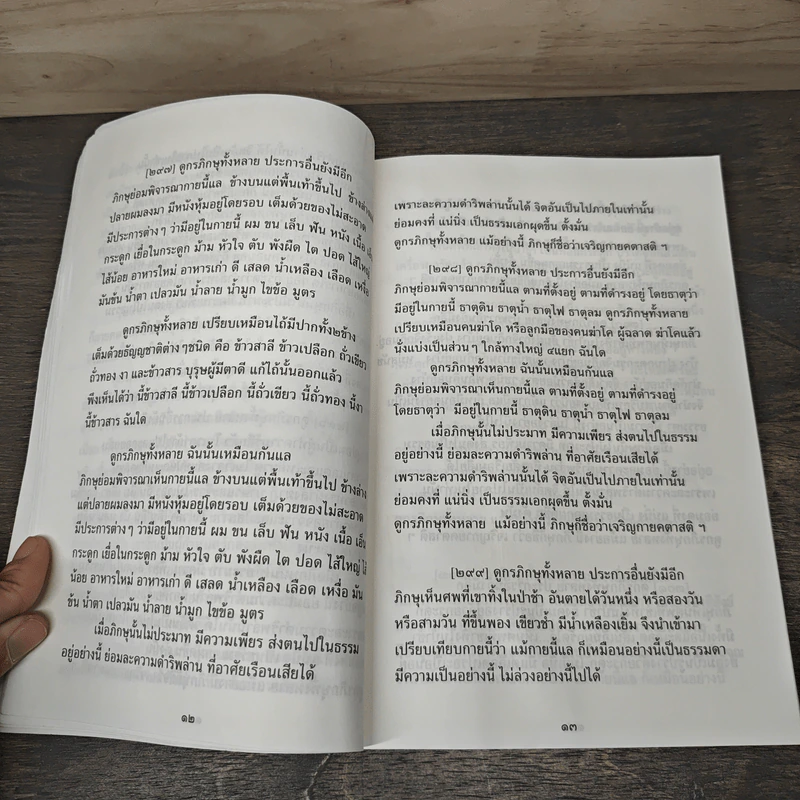 [๒๙๗] ดูกรภิกษุทั้งหลาย ประการอื่นยังมีอีก
ภิกษุย่อมพิจารณากายนี้แล ข้างบนแต่พื้นเท้าขึ้นไป ข้างล่างแต่
ปลายผมลงมา มีหนังหุ้มอยู่โดยรอบ เต็มด้วยของไม่สะอาด
มีประการต่างๆ ว่ามีอยู่ในกายนี้ ผม ขน เล็บ ฟัน หนัง เนื้อ เอ็น
กระดูก เยื่อในกระดูก ม้าม หัวใจ ตับ พังผืด ไต ปอด ไส้ใหญ่
ไส้น้อย อาหารใหม่ อาหารเก่า ดี เสลด น้ำเหลือง เลือด เหงื่อ
มันข้น น้ำตา เปลวมัน น้ำลาย น้ำมูก ไขข้อ มูตร
ดูกรภิกษุทั้งหลาย เปรียบเหมือนไถ้มีปากทั้ง๒ข้าง
เต็มด้วยธัญญชาติต่างๆชนิด คือ ข้าวสาลี ข้าวเปลือก ถั่วเขียว
ถั่วทอง งา และข้าวสาร บุรุษผู้มีตาดี แก้ไถ้นั้นออกแล้ว
พึงเห็นได้ว่า นี้ข้าวสาลี นี้ข้าวเปลือก นี้ถั่วเขียว นี้ถั่วทอง นี้งา
นี้ข้าวสาร ฉันใด
ดูกรภิกษุทั้งหลาย ฉันนั้นเหมือนกันแล
ภิกษุย่อมพิจารณาเห็นกายนี้แล ข้างบนแต่พื้นเท้าขึ้นไป ข้างล่าง
แต่ปลายผมลงมา มีหนังหุ้มอยู่โดยรอบ เต็มด้วยของไม่สะอาด
มีประการต่างๆ ว่ามีอยู่ในกายนี้ ผม ขน เล็บ ฟัน หนัง เนื้อ เอ็น
กระดูก เยื่อในกระดูก ม้าม หัวใจ ตับ พังผืด ไต ปอด ไส้ใหญ่ ไส้
น้อย อาหารใหม่ อาหารเก่า ดี เสลด น้ำเหลือง เลือด เหงื่อ มัน
ข้น น้ำตา เปลวมัน น้ำลาย น้ำมูก ไขข้อ มูตร
เมื่อภิกษุนั้นไม่ประมาท มีความเพียร ส่งตนไปในธรรม
อยู่อย่างนี้ ย่อมละความดำริพล่าน ที่อาศัยเรือนเสียได้
๑๒
เพราะละความดำริพล่านนั้นได้ จิตอันเป็นไปภายในเท่านั้น
ย่อมคงที่ แน่นิ่ง เป็นธรรมเอกผุดขึ้น ตั้งมั่น
ดูกรภิกษุทั้งหลาย แม้อย่างนี้ ภิกษุก็ชื่อว่าเจริญกายคตาสติ ฯ
[๒๙๘] ดูกรภิกษุทั้งหลาย ประการอื่นยังมีอีก
ภิกษุย่อมพิจารณากายนี้แล ตามที่ตั้งอยู่ ตามที่ดำรงอยู่ โดยธาตุว่า
มีอยู่ในกายนี้ ธาตุดิน ธาตุน้ำ ธาตุไฟ ธาตุลม ดูกรภิกษุทั้งหลาย
เปรียบเหมือนคนฆ่าโค หรือลูกมือของคนฆ่าโค ผู้ฉลาด ฆ่าโคแล้ว
นั่งแบ่งเป็นส่วนๆ ใกล้ทางใหญ่ ๔แยก ฉันใด
ดูกรภิกษุทั้งหลาย ฉันนั้นเหมือนกันแล
ภิกษุย่อมพิจารณาเห็นกายนี้แล ตามที่ตั้งอยู่ ตามที่ดำรงอยู่
โดยธาตุว่า มีอยู่ในกายนี้ ธาตุดิน ธาตุน้ำ ธาตุไฟ ธาตุลม
เมื่อภิกษุนั้นไม่ประมาท มีความเพียร ส่งตนไปในธรรม
อยู่อย่างนี้ ย่อมละความดำริพล่าน ที่อาศัยเรือนเสียได้
เพราะละความดำริพล่านนั้นได้ จิตอันเป็นไปภายในเท่านั้น
ย่อมคงที่ แน่นิ่ง เป็นธรรมเอกผุดขึ้น ตั้งมั่น
ดูกรภิกษุทั้งหลาย แม้อย่างนี้ ภิกษุก็ชื่อว่าเจริญกายคตาสติ ฯ
[๒๙๙] ดูกรภิกษุทั้งหลาย ประการอื่นยังมีอีก
ภิกษุเห็นศพที่เขาทิ้งในป่าช้า อันตายได้วันหนึ่ง หรือสองวัน
หรือสามวัน ที่ขึ้นพอง เขียวช้ำ มีน้ำเหลืองเยิ้ม จึงนำเข้ามา
เปรียบเทียบกายนี้ว่า แม้กายนี้แล ก็เหมือนอย่างนี้เป็นธรรมดา
มีความเป็นอย่างนี้ ไม่ล่วงอย่างนี้ไปได้
๑๓